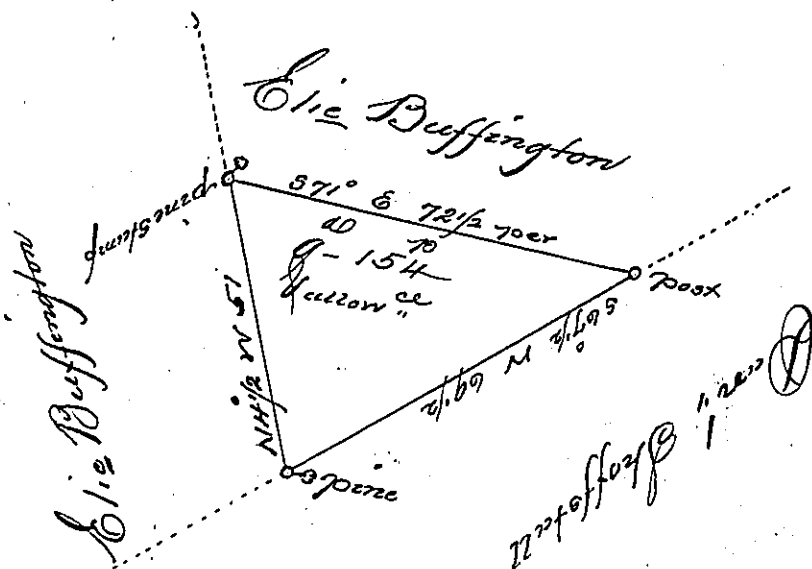 Elie Buffington
pine Stump
S71° E 72 1/2 per
a p
9 - 154
& allow ce
"
post
S 67 1/2° W 69 1/2
N 4 1/2 W 51
pine
Elie Buffington
Shoffstall